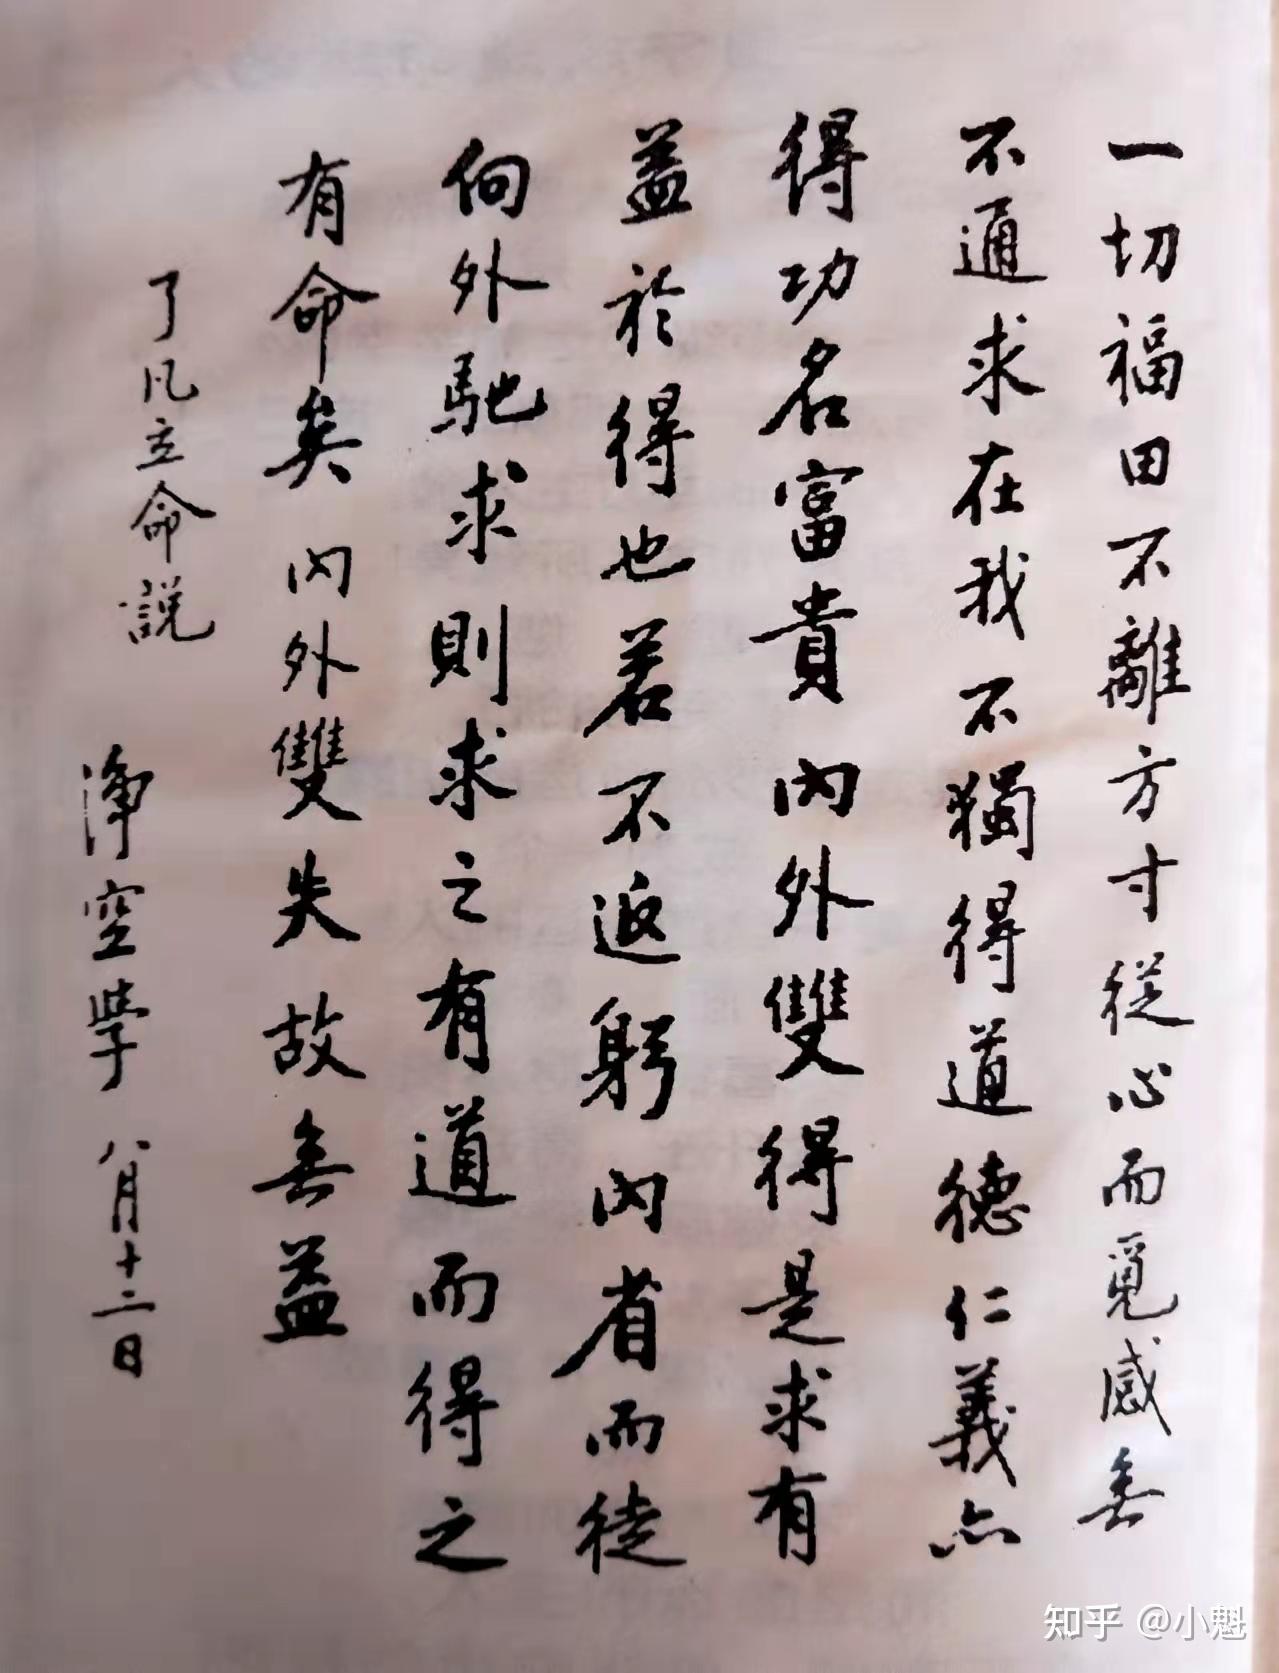 一切福田不離方寸從心而覓感無
不通求在我不獨得道德仁義亦
得功名富貴內外雙得是求有
益於得也若不返躬內省而徒
向外馳求則求之有道而得之
有命矣內外雙失故無益
了凡立命說
淨空學 八月十二日
知乎 @小魁